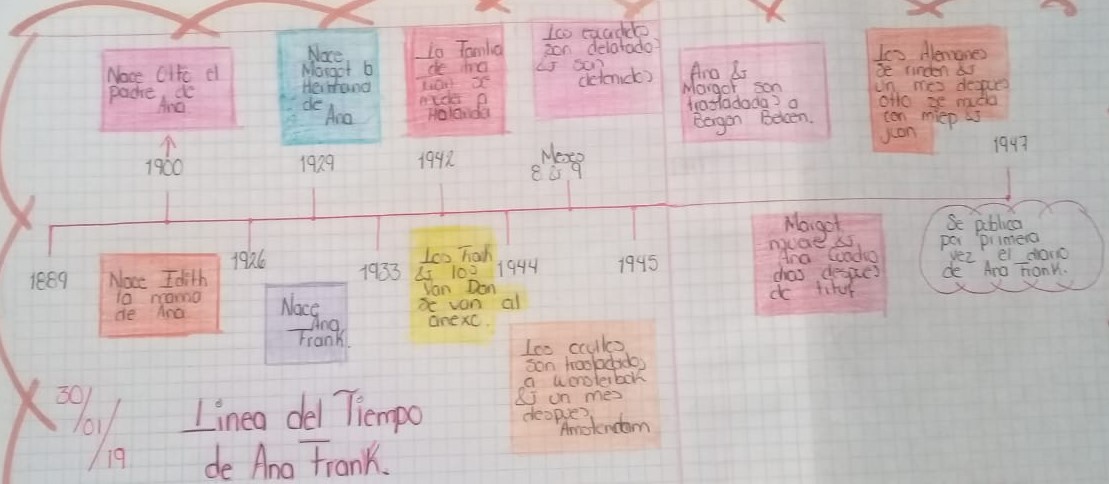 Nace Otto el
padre de
Ana
1900
Nace
Margot la
Hermana
de
Ana
1929
La Familia
de Ana
se
muda a
Holanda
1942
son delatados
y son
detenidos
8 y 9
Ana y
Margot son
trasladadas a
Bergen Belcen.
Los Alemanes
se rinden y
un mes despues
otto se muda
con miep y
juan
1947
1889
Nace Idith
la mama
de Ana
1926
Nace
Ana
Frank.
1933
Los Frank
y los
Van Dan
se van al
anexo.
1944
Los ocultos
son trasladados
a
y un mes
despues
Amsterdam
1945
Margot
muere y
Ana
dias despues
de tifus
Se publica
por primera
vez el diario
de Ana Frank.
30/01/19
Linea del Tiempo
de Ana Frank.